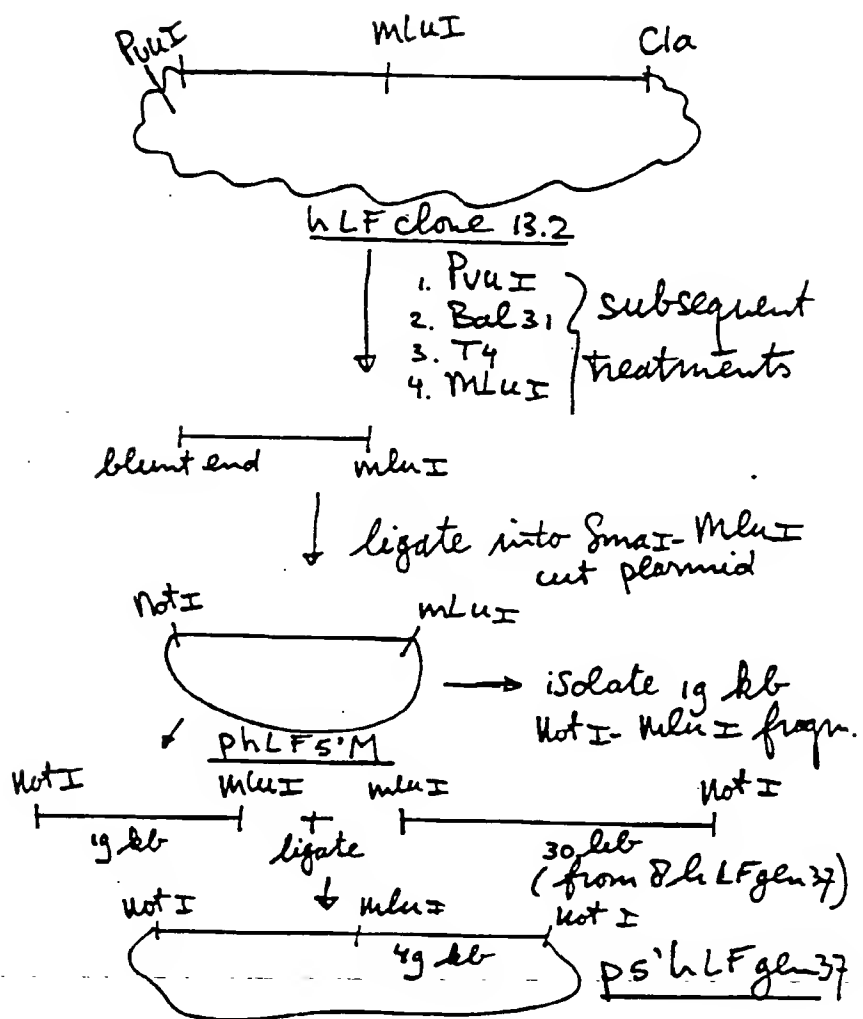 PvuI
MluI
Cla
hLF clone 13.2
1. PvuI
2. Bal31
3. T4
4. MLuI
subsequent
treatments
blunt end
mluI
ligate into SmaI-MluI
cut plasmid
NotI
mLuI
isolate 19 kb
NotI-MluI fragm.
phLF5'M
NotI
MluI
mluI
NotI
19 kb
+
ligate
30 kb
(from 8hLFgen37)
NotI
mluI
NotI
49 kb
p5'hLFgen37